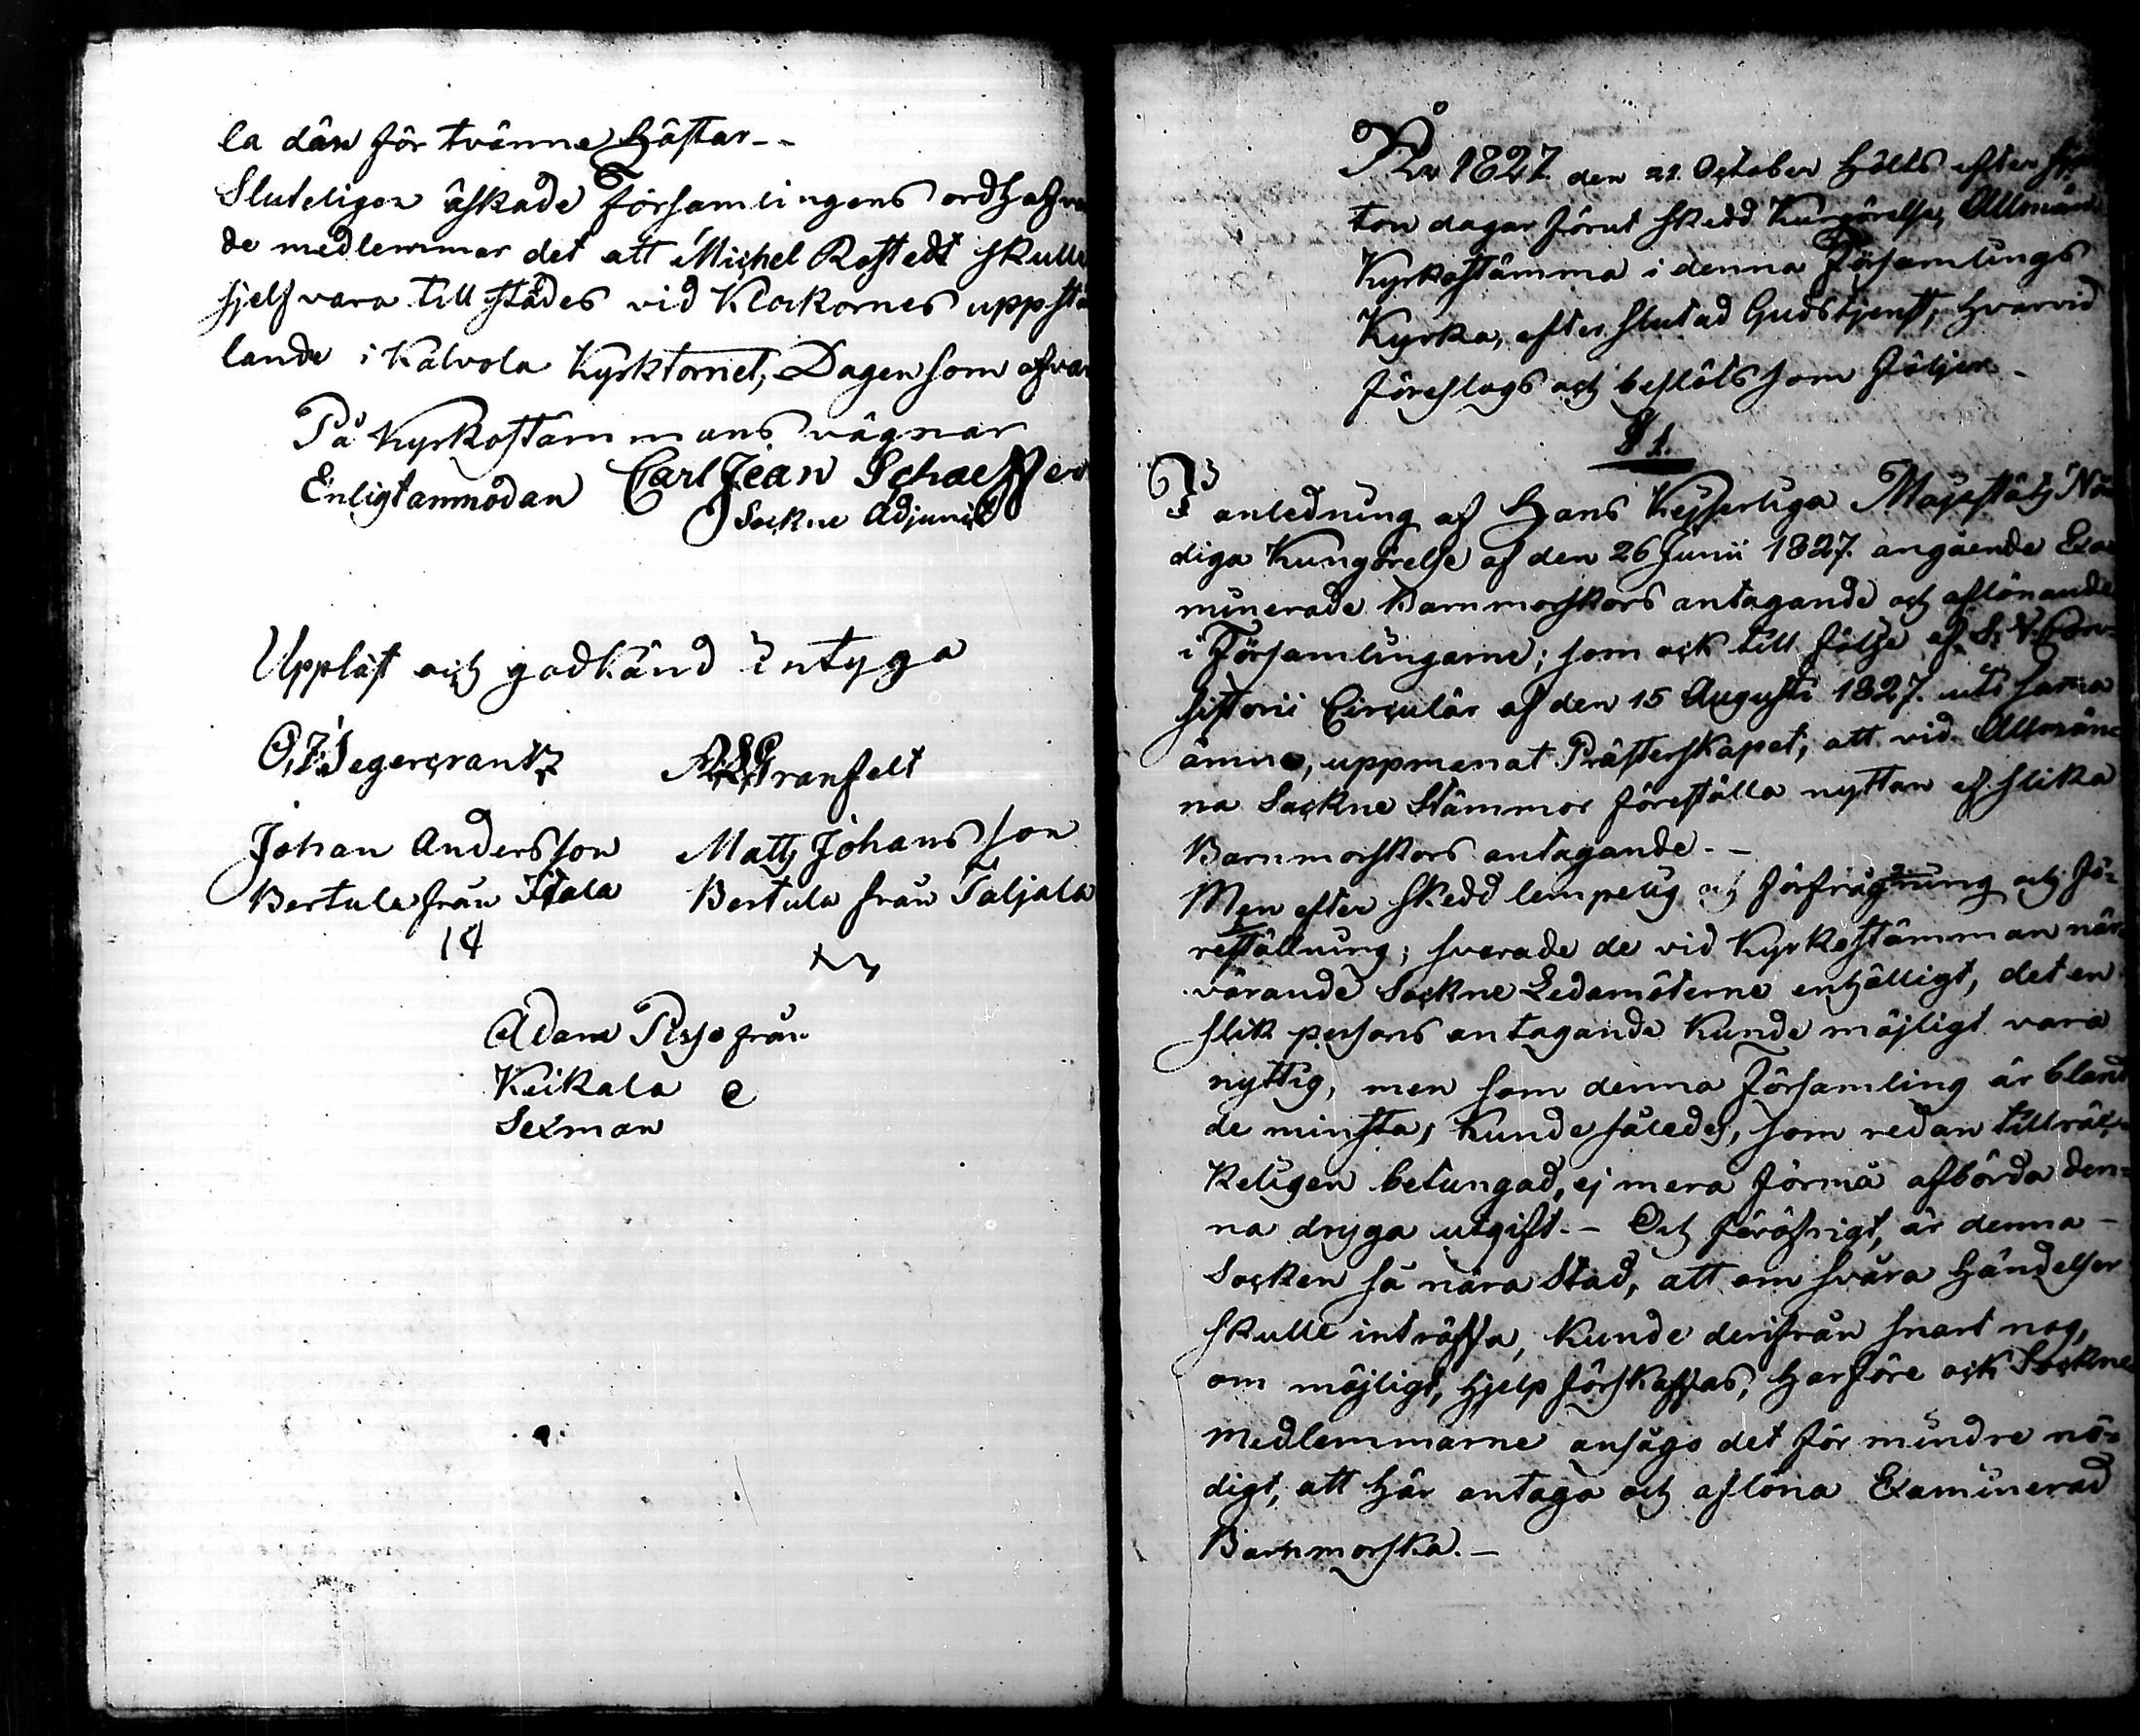 la dän för tvänne Hästar--
Sluteligen äskade Församlingens ordhafvan
de medlemmar det att Michel Rostedt skulle
sjelf vara tillstädes vid Klockornes uppstä
lande i Kalvola Kyrktornet, Dagen som ofvan
På Kyrkostämmans vägnar
Enligt anmodan Carl Jean Schaeffer
Sockne Adjunct
Uppläst och godkänd intyga
O, J, Segercrantz
Tranfelt
Johan Andersson Matts Johansson
Bertula från Ittala Bertula från Taljala
Adam Pispo från
Keikala
Sexman
År 1827 den 21. October hölts efter fjor
ton dagar förut skedd Kungörelse, Allmän
Kyrkostämma i denna Församlings
Kyrka, efter slutad Gudstjenst, hvarvid
föreslogs och beslöts som följer -
§ 1.
I anledning af Hans Kejserliga Majestäts Nå-
diga Kungörelse af den 26 Junii 1827. angående Exa-
minerade Barnmorskors antagande och aflönande
i Församlingarne; som ock till följe af S. V. Con-
sistorii Circulär af den 15 Augusti 1827. uti samma
ämne, uppmanat Prästerskapet, att vid Allmän-
na Sockne Stämmor föreställa nyttan af slika
Barnmorskors antagande. -
Men efter skedd lempelig och förfrågning och fö-
reställning; svarade de vid Kyrkostämman när-
varande Sockne Ledamöterne enhälligt, det en
slik persons antagande kunde möjligt vara
nyttig, men som denna Församling är bland
de minsta, kunde således, som redan tillräc-
keligen betungad, ej mera förmå afbörda den-
na dryga utgift. - Och föröfrigt, är denna -
Socken så nära Stad, att om svåra händelser
skulle inträffa, kunde derifrån snart nog,
om möjligt, hjelp förskaffas, harföre ock Sockne
medlemmarne ansågo det för mindre nö-
digt, att här antaga och aflöna Examinerad
Barnmorska. -